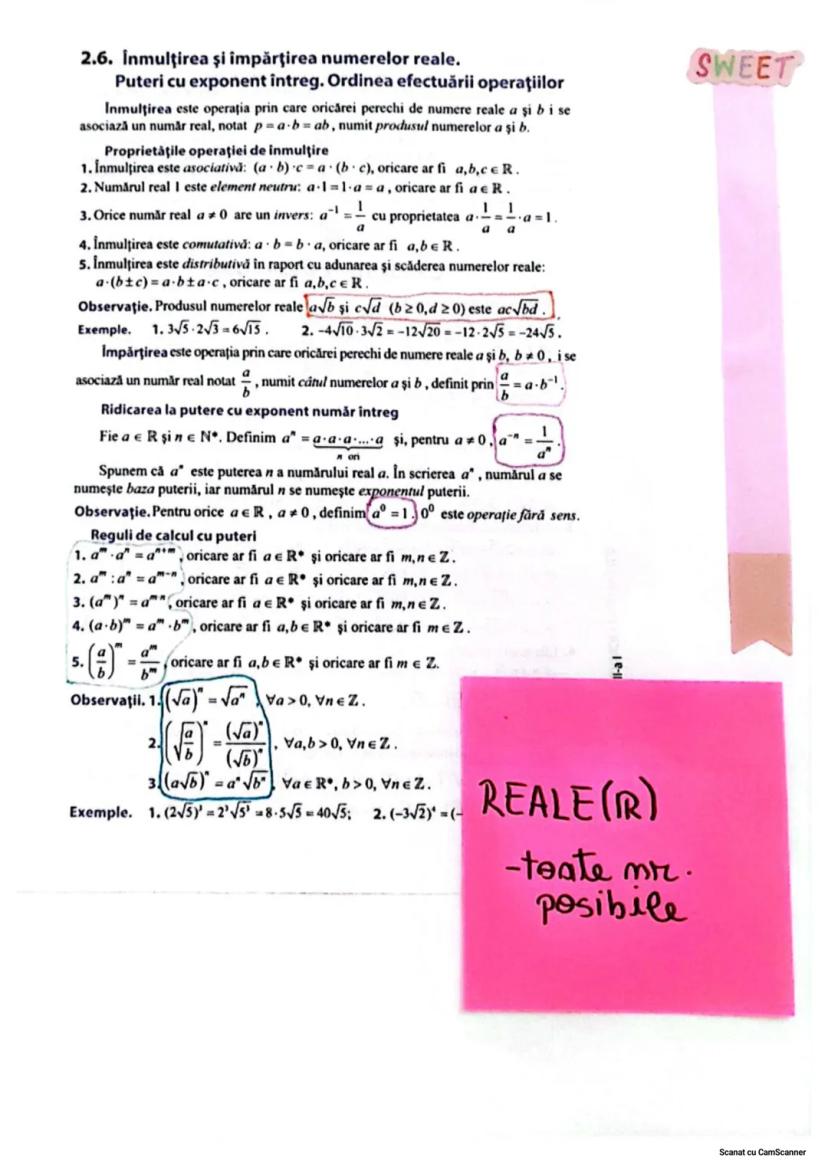 SWEET
2.6. Înmulțirea și împărțirea numerelor reale.
Puteri cu exponent întreg. Ordinea efectuării operațiilor
Inmulțirea este operația prin care oricărei perechi de numere reale a și b i se
asociază un număr real, notat p = a·b = ab, numit produsul numerelor a și b.
Proprietățile operației de înmulțire
1. Înmulțirea este asociativă: (a · b) · c = a · (b · c), oricare ar fi a,b,c ∈ R.
2. Numărul real 1 este element neutru: a·1 = 1·a = a, oricare ar fi a ∈ R.
3. Orice număr real a ≠ 0 are un invers: a⁻¹ = 1/a cu proprietatea a · 1/a = 1/a · a = 1.
4. Înmulțirea este comutativă: a · b = b · a, oricare ar fi a,b ∈ R.
5. Înmulțirea este distributivă în raport cu adunarea și scăderea numerelor reale:
a·(b±c) = a·b ± a·c, oricare ar fi a,b,c ∈ R.
Observație. Produsul numerelor reale a√b și c√d (b ≥ 0, d ≥ 0) este ac√bd.
Exemple. 1. 3√5 · 2√3 = 6√15. 2. −4√10 · 3√2 = −12√20 = −12 · 2√5 = −24√5.
Împărțirea este operația prin care oricărei perechi de numere reale a și b, b ≠ 0, i se
asociază un număr real notat a/b, numit câtul numerelor a și b, definit prin a/b = a·b⁻¹.
Ridicarea la putere cu exponent număr întreg
Fie a ∈ R și n ∈ N*. Definim aⁿ = a·a·a·...·a și, pentru a ≠ 0, a⁻ⁿ = 1/aⁿ.
n ori
Spunem că aⁿ este puterea n a numărului real a. În scrierea aⁿ, numărul a se
numește baza puterii, iar numărul n se numește exponentul puterii.
Observație. Pentru orice a ∈ R, a ≠ 0, definim a⁰ = 1. 0⁰ este operație fără sens.
Reguli de calcul cu puteri
1. aᵐ · aⁿ = aⁿ⁺ᵐ, oricare ar fi a ∈ R* și oricare ar fi m,n ∈ Z.
2. aᵐ : aⁿ = aᵐ⁻ⁿ, oricare ar fi a ∈ R* și oricare ar fi m,n ∈ Z.
3. (aᵐ)ⁿ = aᵐ·ⁿ, oricare ar fi a ∈ R* și oricare ar fi m,n ∈ Z.
4. (a·b)ᵐ = aᵐ · bᵐ, oricare ar fi a,b ∈ R* și oricare ar fi m ∈ Z.
5. (a/b)ᵐ = aᵐ/bᵐ, oricare ar fi a,b ∈ R* și oricare ar fi m ∈ Z.
Observații. 1. (√a)ⁿ = √aⁿ, ∀a > 0, ∀n ∈ Z.
2. (√a/b)ⁿ = (√a)ⁿ/(√b)ⁿ, ∀a,b > 0, ∀n ∈ Z.
3. (a√b)ⁿ = aⁿ√bⁿ, ∀a ∈ R*, b > 0, ∀n ∈ Z.
Exemple. 1. (2√5)³ = 2³√5³ = 8·5√5 = 40√5; 2. (−3√2)⁴ = (−
II-a I
REALE (ℝ)
-toate nr.
posibile
Scanat cu CamScanner